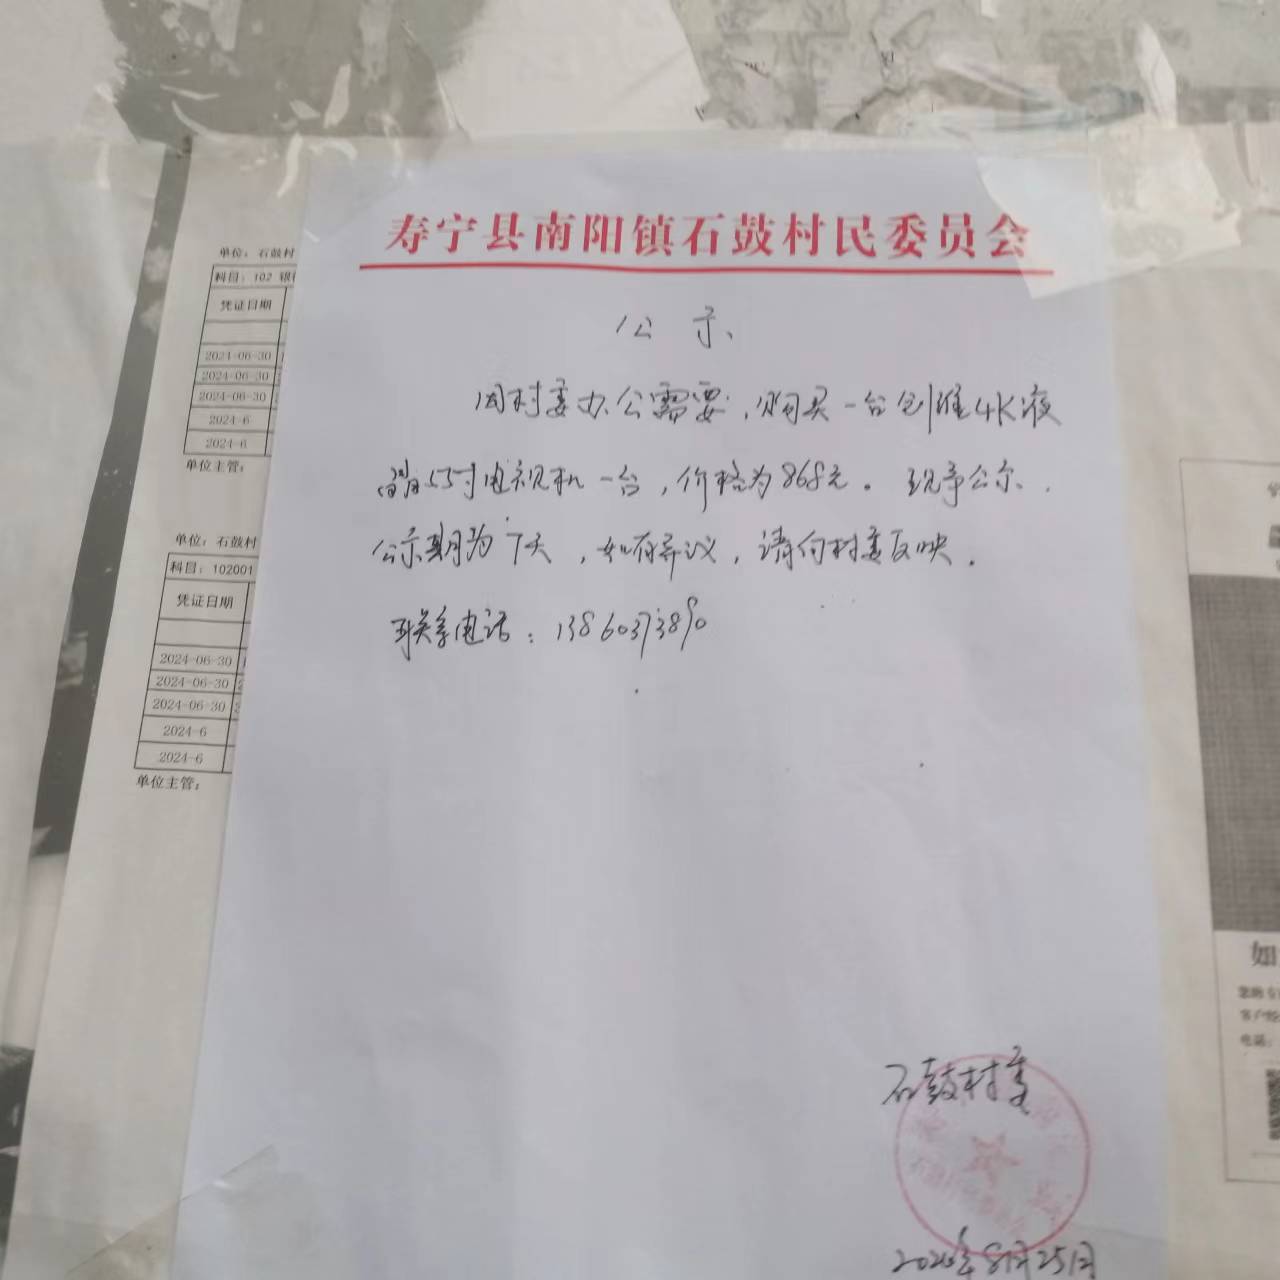 寿宁县南阳镇石鼓村民委员会
公示
因村委办公需要，购买一台创维4K液
晶55寸电视机一台，价格为868元。现予公示.
公示期为7天，如有异议，请向村委反映.
联系电话：13860373890
石鼓村委
8月25日
单位：石鼓村
科目：102 银
凭证日期
2024-06-30
2024-06-30
2024-06-30
2024-6
2024-6
单位主管：
单位：石鼓村
科目：102001
凭证日期
2024-06-30
2024-06-30
2024-06-30
2024-6
2024-6
单位主管：
如
电话：